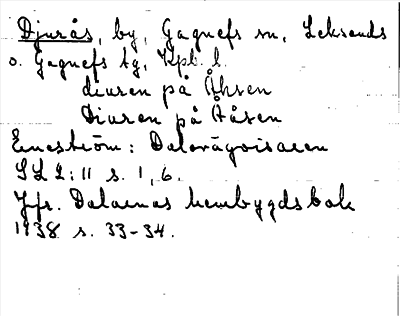 Djurås, by, Gagnefs sn, Leksands
o. Gagnefs tg, Kpb. l.
diuren på Åhsen
Diuren på Ååsen
Eneström: Dalavägvisaren
SL 2:11 s. 1, 6.
Jfr. Dalarnas hembygdsbok
1938 s. 33-34.